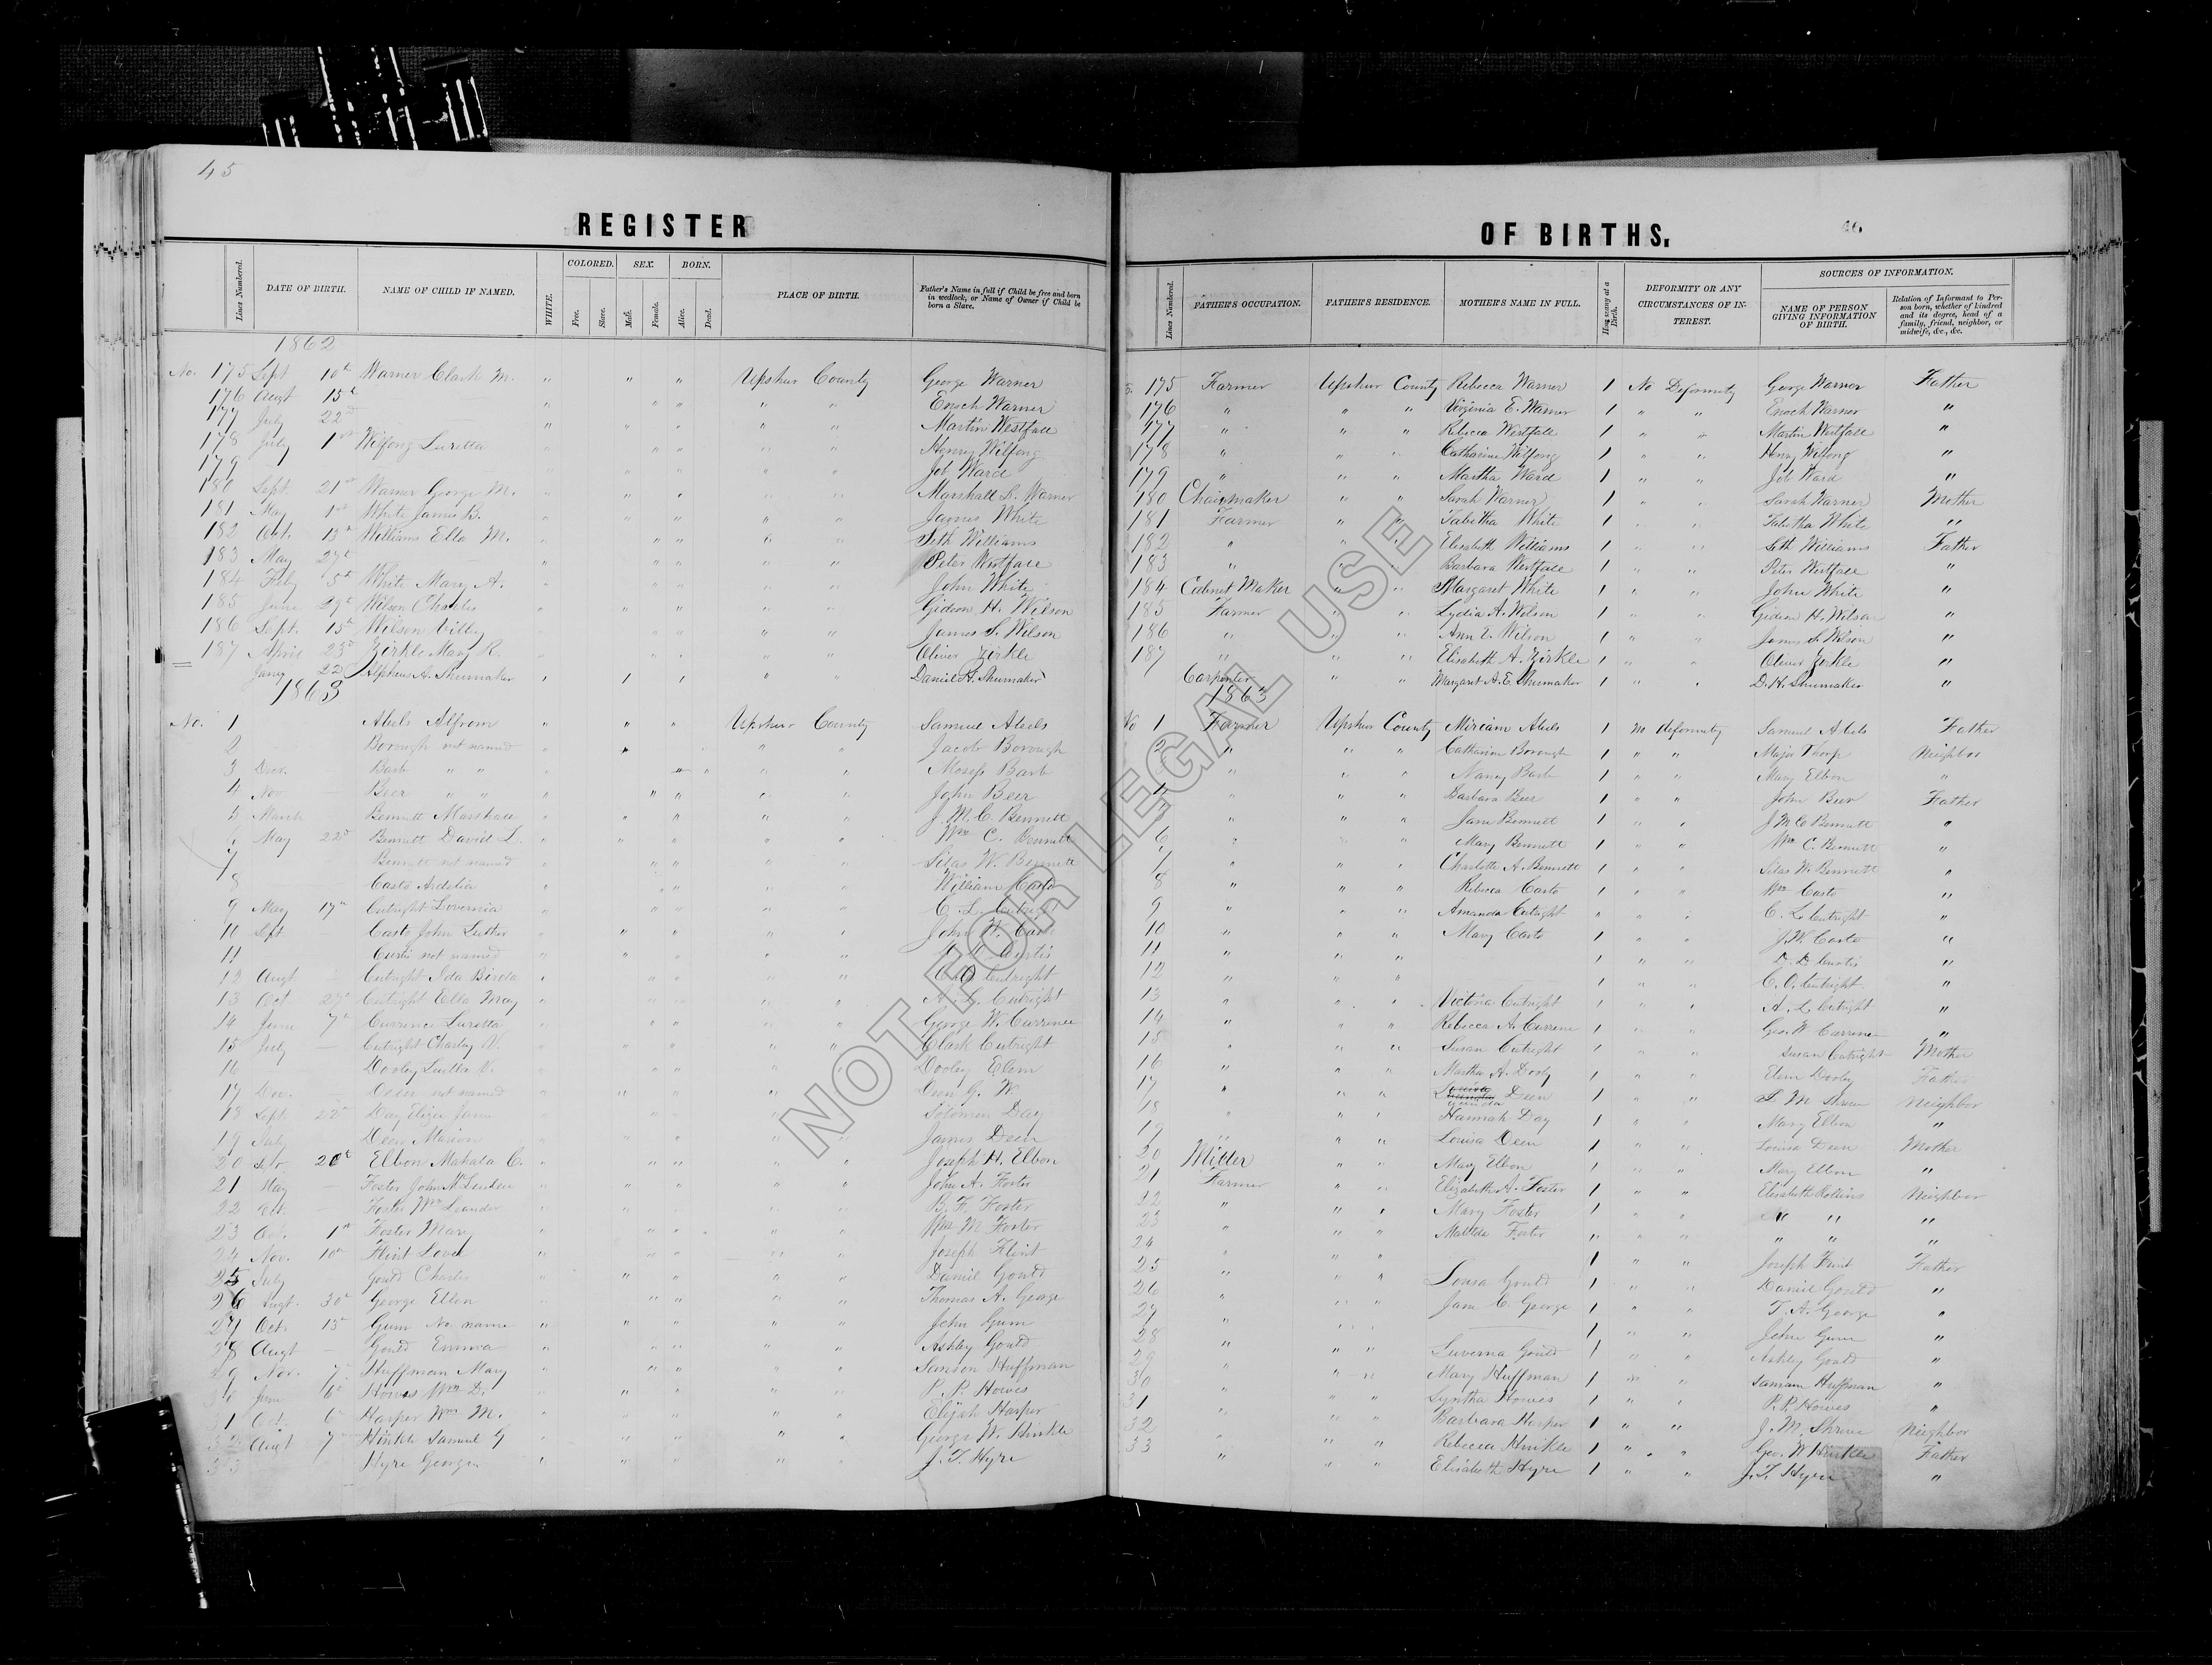 45
REGISTER
Lines Numbered. DATE OF BIRTH. NAME OF CHILD IF NAMED. WHITE. COLORED. Free. Slave. SEX. Male. Female. BORN. Alive. Dead. PLACE OF BIRTH. Father's Name in full if Child be free and born in wedlock, or Name of Owner if Child be born a Slave.
1862
No. 175 Sept 10th Warner Clark M. " " " Upshur County George Warner
176 Augt 15th — " " " " " Enoch Warner
177 July 22d — " " " " " Martin Westfall
178 July 1st Wilfong Luretta " " " " " Henry Wilfong
179 — " " " " " Job Ward
180 Sept. 21st Warner George M. " " " " " Marshall D. Warner
181 May 1st White James B. " " " " " James White
182 Oct. 13th Williams Ella M. " " " " " Seth Williams
183 May 27th — " " " " " Peter Westfall
184 Feby 5th White Mary A. " " " " " John White
185 June 29th Wilson Charles " " " " " Gideon H. Wilson
186 Sept. 15th Wilson " " " " " James S. Wilson
187 April 23d Zirkle Mary R. " " " " " Oliver Zirkle
Jany 22d Alpheus A. Shumaker " " " " " Daniel H. Shumaker
1863
No. 1 Abels Alfrom " " " Upshur County Samuel Abels
2 Borough not named " " " " " Jacob Borough
3 Decr. — Barb " " " " " " Moses Barb
4 Nov — Beer " " " " " " " John Beer
5 March — Bennett Marshall " " " " " J. M. C. Bennett
6 May 22d Bennett David L. " " " " " Wm C. Bennett
7 Bennett not named " " " " " Silas W. Bennett
8 Casto Ardelia " " " " " William Casto
9 May 17th Cutright Lovernia " " " " " C. L. Cutright
10 Sept — Casto John Luther " " " " " John W. Casto
11 Curtis not named " " " " " Curtis
12 Augt Cutright Ida " " " " " C. O. Cutright
13 Oct 27th Cutright Ella May " " " " " A. L. Cutright
14 June 7th Currence Luretta " " " " " George W. Currence
15 July — Cutright Charley N. " " " " " Clark Cutright
16 Dooley Luella V. " " " " " Dooley Elem
17 Dec. — Deen not named " " " " " Deen G. W.
18 Sept 22d Day Eliza Jane " " " " " Solomon Day
19 July — Deen Marion " " " " " James Deen
20 20th Elbon Mahala C. " " " " " Joseph H. Elbon
21 May — Foster John McLenden " " " " " John A. Foster
22 Oct. — Foster Wm Leander " " " " " B. F. Foster
23 Oct. 1st Foster Mary " " " " " Wm M. Foster
24 Nov. 10th Flint " " " " " Joseph Flint
25 July Gould Charles " " " " " Daniel Gould
26 Augt. 30th George Ellen " " " " " Thomas A. George
27 Oct. 15 Gum No name " " " " " John Gum
28 Augt — Gould Emma " " " " " Ashley Gould
29 Nov. 7 Huffman Mary " " " " " Samson Huffman
30 June 6th Howes Wm D. " " " " " P. P. Howes
31 Oct. 6 Harper Wm M. " " " " " Elijah Harper
32 Augt 7 Hinkle Samuel G " " " " " George W. Hinkle
33 Hyre George " " " " " J. T. Hyre
OF BIRTHS.
46
Lines Numbered. FATHER'S OCCUPATION. FATHER'S RESIDENCE. MOTHER'S NAME IN FULL. How many at a Birth. DEFORMITY OR ANY CIRCUMSTANCES OF INTEREST. SOURCES OF INFORMATION. NAME OF PERSON GIVING INFORMATION OF BIRTH. Relation of Informant to Person born, whether of kindred and its degree, head of a family, friend, neighbor, or midwife, &c., &c.
175 Farmer Upshur County Rebecca Warner 1 No Deformity George Warner Father
176 " " " Virginia E. Warner 1 " " Enoch Warner "
177 " " " Rebecca Westfall 1 " " Martin Westfall "
178 " " " Catharine Wilfong 1 " " Henry Wilfong "
179 " " " Martha Ward 1 " " Job Ward "
180 Chairmaker " " Sarah Warner 1 " " Sarah Warner Mother
181 Farmer " " Tabitha White 1 " " Tabitha White "
182 " " " Elisabeth Williams 1 " " Seth Williams Father
183 " " " Barbara Westfall 1 " " Peter Westfall "
184 Cabinet Maker " " Margaret White 1 " " John White "
185 Farmer " " Lydia A. Wilson 1 " " Gideon H. Wilson "
186 " " " Ann E. Wilson 1 " " James S. Wilson "
187 " " " Elisabeth A. Zirkle 1 " " Oliver Zirkle "
Carpenter " " Margaret A. E. Shumaker 1 " " D. H. Shumaker "
1863
No 1 Farmer Upshur County Miriam Abels 1 no deformity Samuel Abels Father
2 " " " Catharine Borough 1 " " Major Thorp Neighbor
" " " Nancy Barb 1 " " Mary Elbon "
4 " " " Barbara Beer 1 " " John Beer Father
5 " " " Jane Bennett 1 " " J M C Bennett "
6 " " " Mary Bennett 1 " " Wm C. Bennett "
7 " " " Charlotte A. Bennett 1 " " Silas W. Bennett "
8 " " " Rebecca Casto 1 " " Wm Casto "
9 " " " Amanda Cutright " " " C. L. Cutright "
10 " " " Mary Casto 1 " " J. W. Casto "
11 " " " 1 " " Curtis "
12 " " " — 1 " " C. O. Cutright "
13 " " " Victoria Cutright 1 " " A. L. Cutright "
14 " " " Rebecca A. Currence 1 " " Geo. W Currence "
15 " " " Susan Cutright 1 " " Susan Cutright Mother
16 " " " Martha A. Dooly 1 " " Elem Dooley Father
17 " " " Deen 1 " " J. M Shreve Neighbor
18 " " " Hannah Day 1 " " Mary Elbon "
19 " " " Louisa Deen 1 " " Louisa Deen Mother
20 Miller " " Mary Elbon 1 " " Mary Elbon "
21 Farmer " " Elizabeth A. Foster 1 " " Elisabeth Rollins Neighbor
22 " " " Mary Foster 1 " " " " "
23 " " " Matilda Foster " " " " " "
24 " " " 1 " " Joseph Flint Father
25 " " " Lousa Gould 1 " " Daniel Gould "
26 " " " Jane C. George 1 " " T. A. George "
27 " " " — 1 " " John Gum "
28 " " " Luverna Gould 1 " " Ashley Gould "
29 " " " Mary Huffman 1 " " Samson Huffman "
30 " " " Syntha Howes 1 " " P. P. Howes "
31 " " " Barbara Harper 1 " " J. M. Shreve Neighbor
32 " " " Rebecca Hinkle 1 " " Geo. W Hinkle Father
33 " " " Elisabeth Hyre 1 " " J. T. Hyre "
NOT FOR LEGAL USE